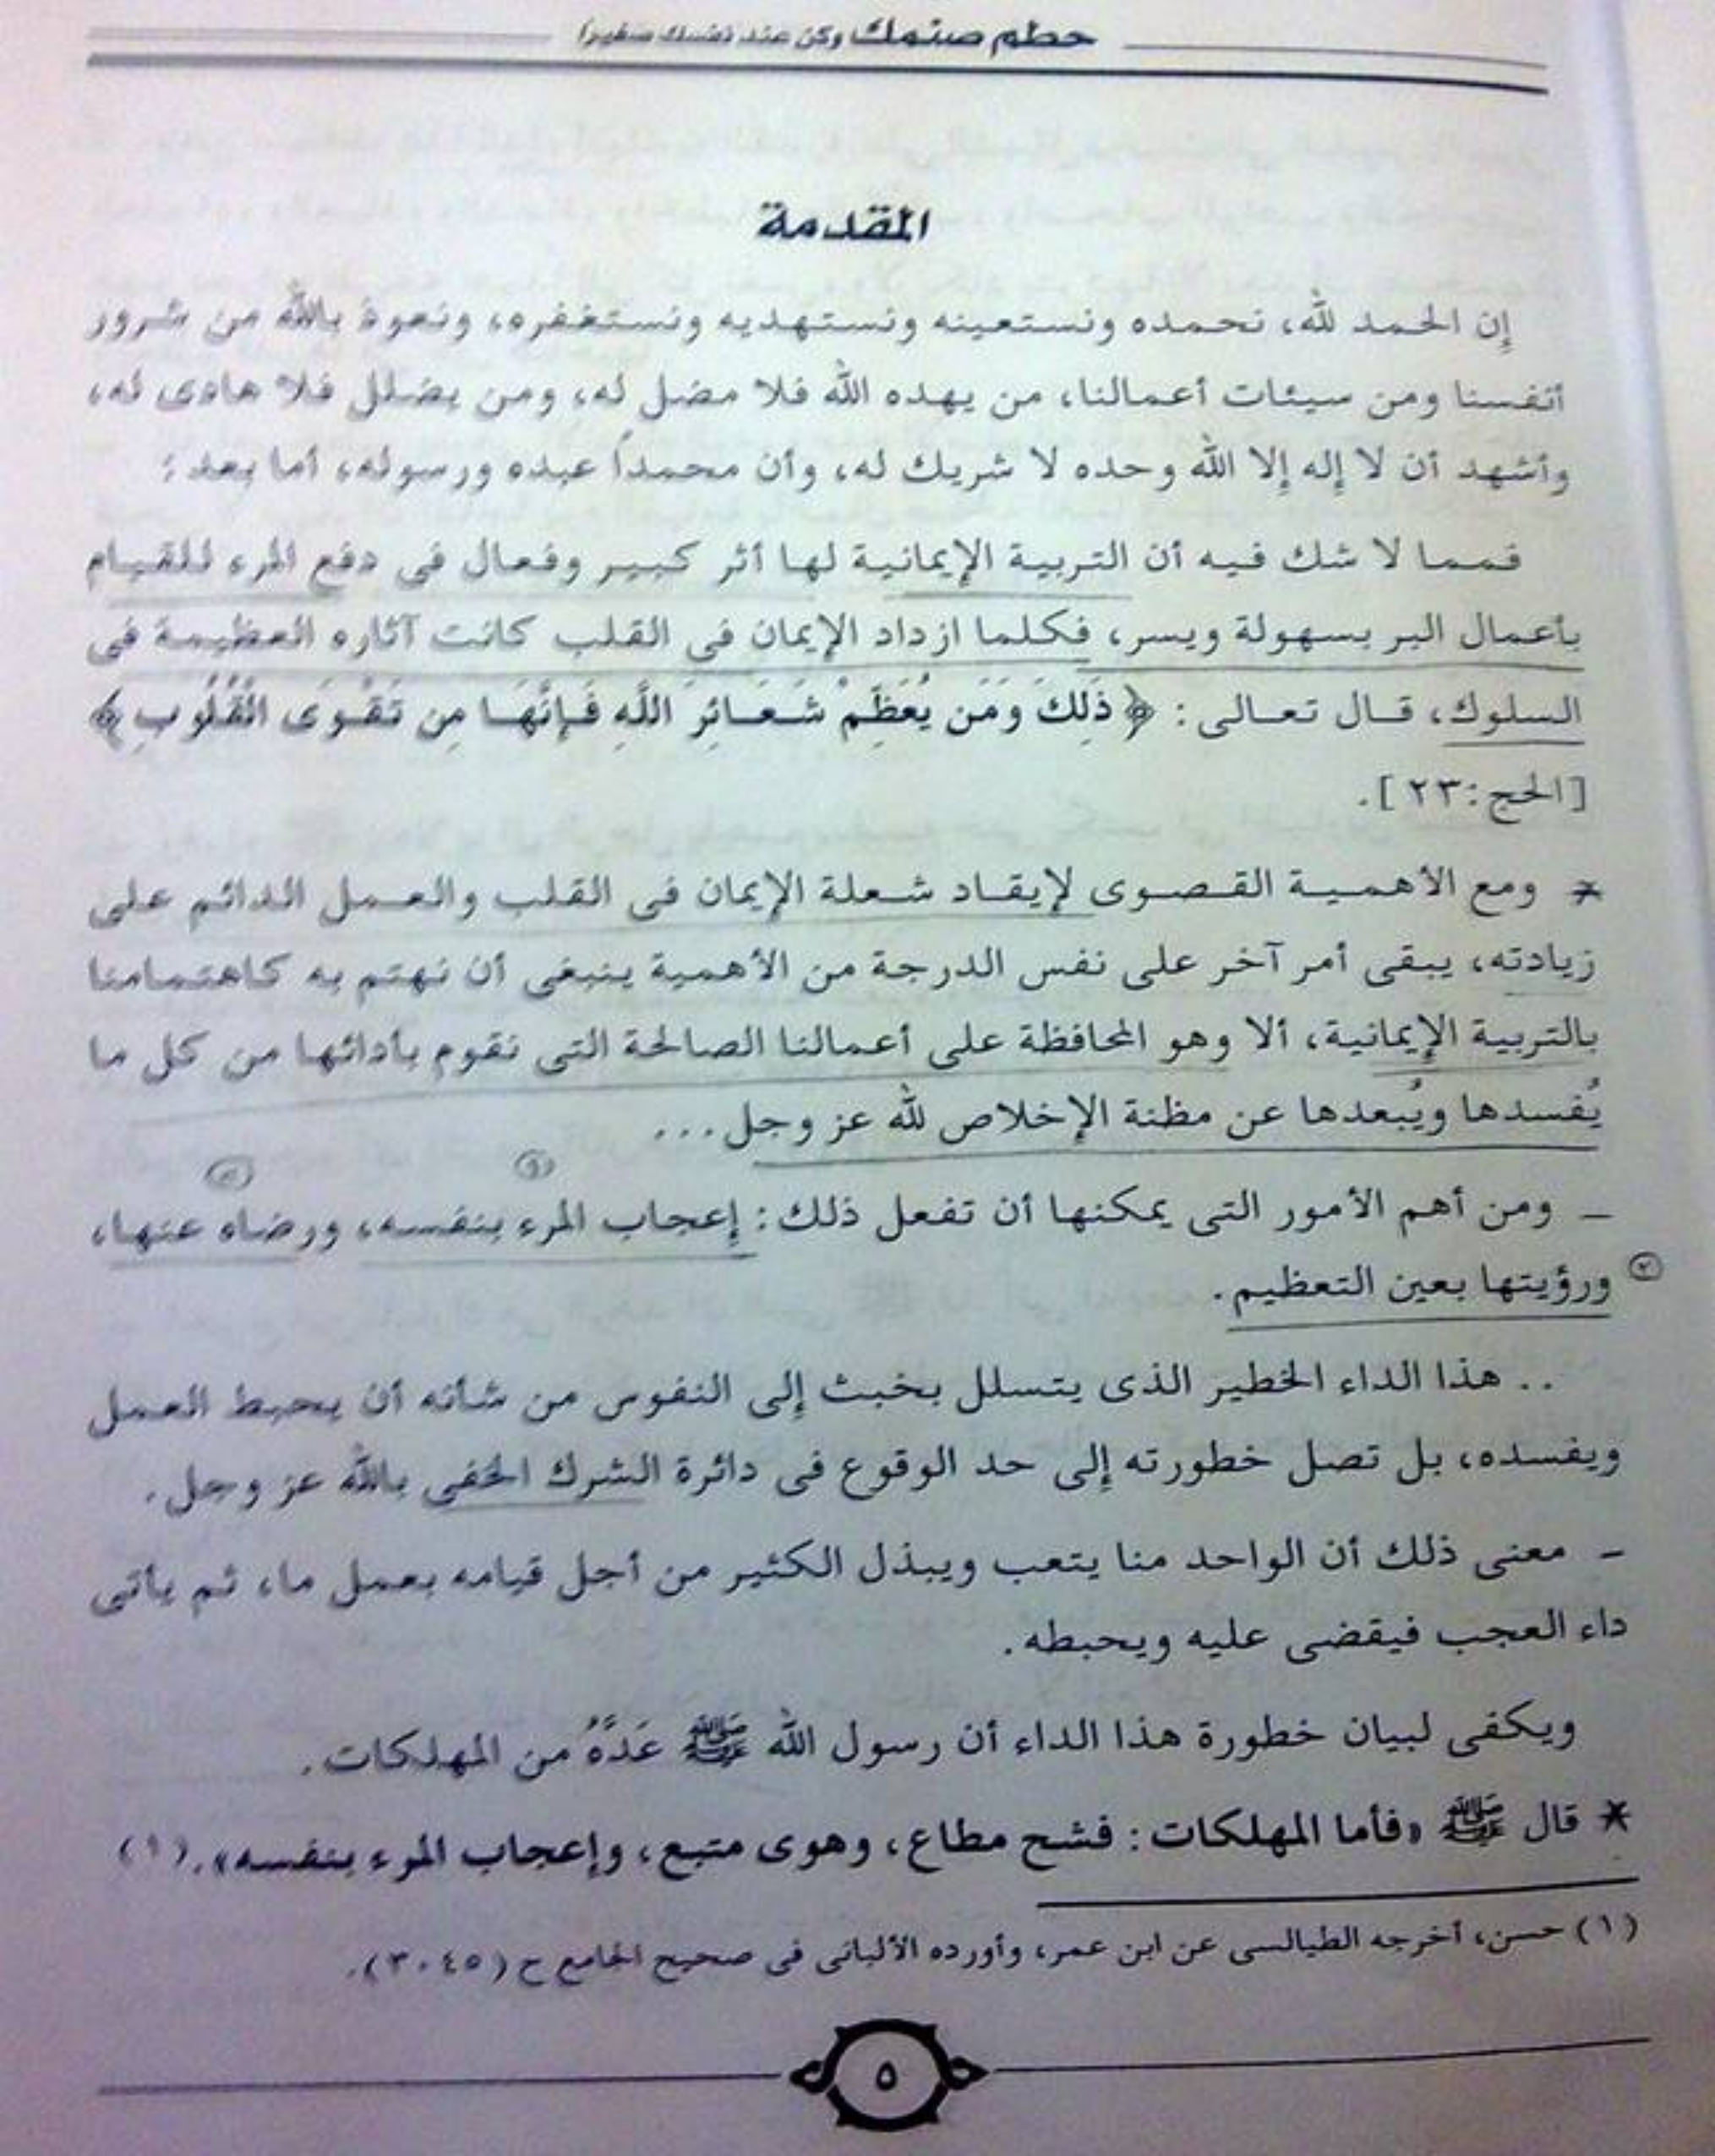 حطم صنمك وكن عند نفسك صغيرا
المقدمة
إن الحمد لله، نحمده ونستعينه ونستهديه ونستغفره، ونعوذ بالله من شرور
أنفسنا ومن سيئات أعمالنا، من يهده الله فلا مضل له، ومن يضلل فلا هادى له،
وأشهد أن لا إله إلا الله وحده لا شريك له، وأن محمداً عبده ورسوله، أما بعد:
فمما لا شك فيه أن التربية الإيمانية لها أثر كبير وفعال فى دفع المرء للقيام
بأعمال البر بسهولة ويسر، فكلما ازداد الإيمان فى القلب كانت آثاره العظيمة فى
السلوك، قال تعالى: ﴿ذَلِكَ وَمَن يُعَظِّمْ شَعَائِرَ اللَّهِ فَإِنَّهَا مِن تَقْوَى الْقُلُوبِ﴾
[الحج:٢٣].
* ومع الأهمية القصوى لإيقاد شعلة الإيمان فى القلب والعمل الدائم على
زيادته، يبقى أمر آخر على نفس الدرجة من الأهمية ينبغى أن نهتم به كاهتمامنا
بالتربية الإيمانية، ألا وهو المحافظة على أعمالنا الصالحة التى نقوم بأدائها من كل ما
يُفسدها ويُبعدها عن مظنة الإخلاص لله عز وجل...
– ومن أهم الأمور التى يمكنها أن تفعل ذلك: إعجاب المرء بنفسه، ورضاه عنها،
ورؤيتها بعين التعظيم.
.. هذا الداء الخطير الذى يتسلل بخبث إلى النفوس من شأنه أن يحبط العمل
ويفسده، بل تصل خطورته إلى حد الوقوع فى دائرة الشرك الخفى بالله عز وجل.
– معنى ذلك أن الواحد منا يتعب ويبذل الكثير من أجل قيامه بعمل ما، ثم يأتى
داء العجب فيقضى عليه ويحبطه.
ويكفى لبيان خطورة هذا الداء أن رسول الله ﷺ عَدَّهُ من المهلكات.
* قال ﷺ «فأما المهلكات: فشح مطاع، وهوى متبع، وإعجاب المرء بنفسه».(١)
(١) حسن، أخرجه الطيالسى عن ابن عمر، وأورده الألبانى فى صحيح الجامع ح (٣٠٤٥).
٥